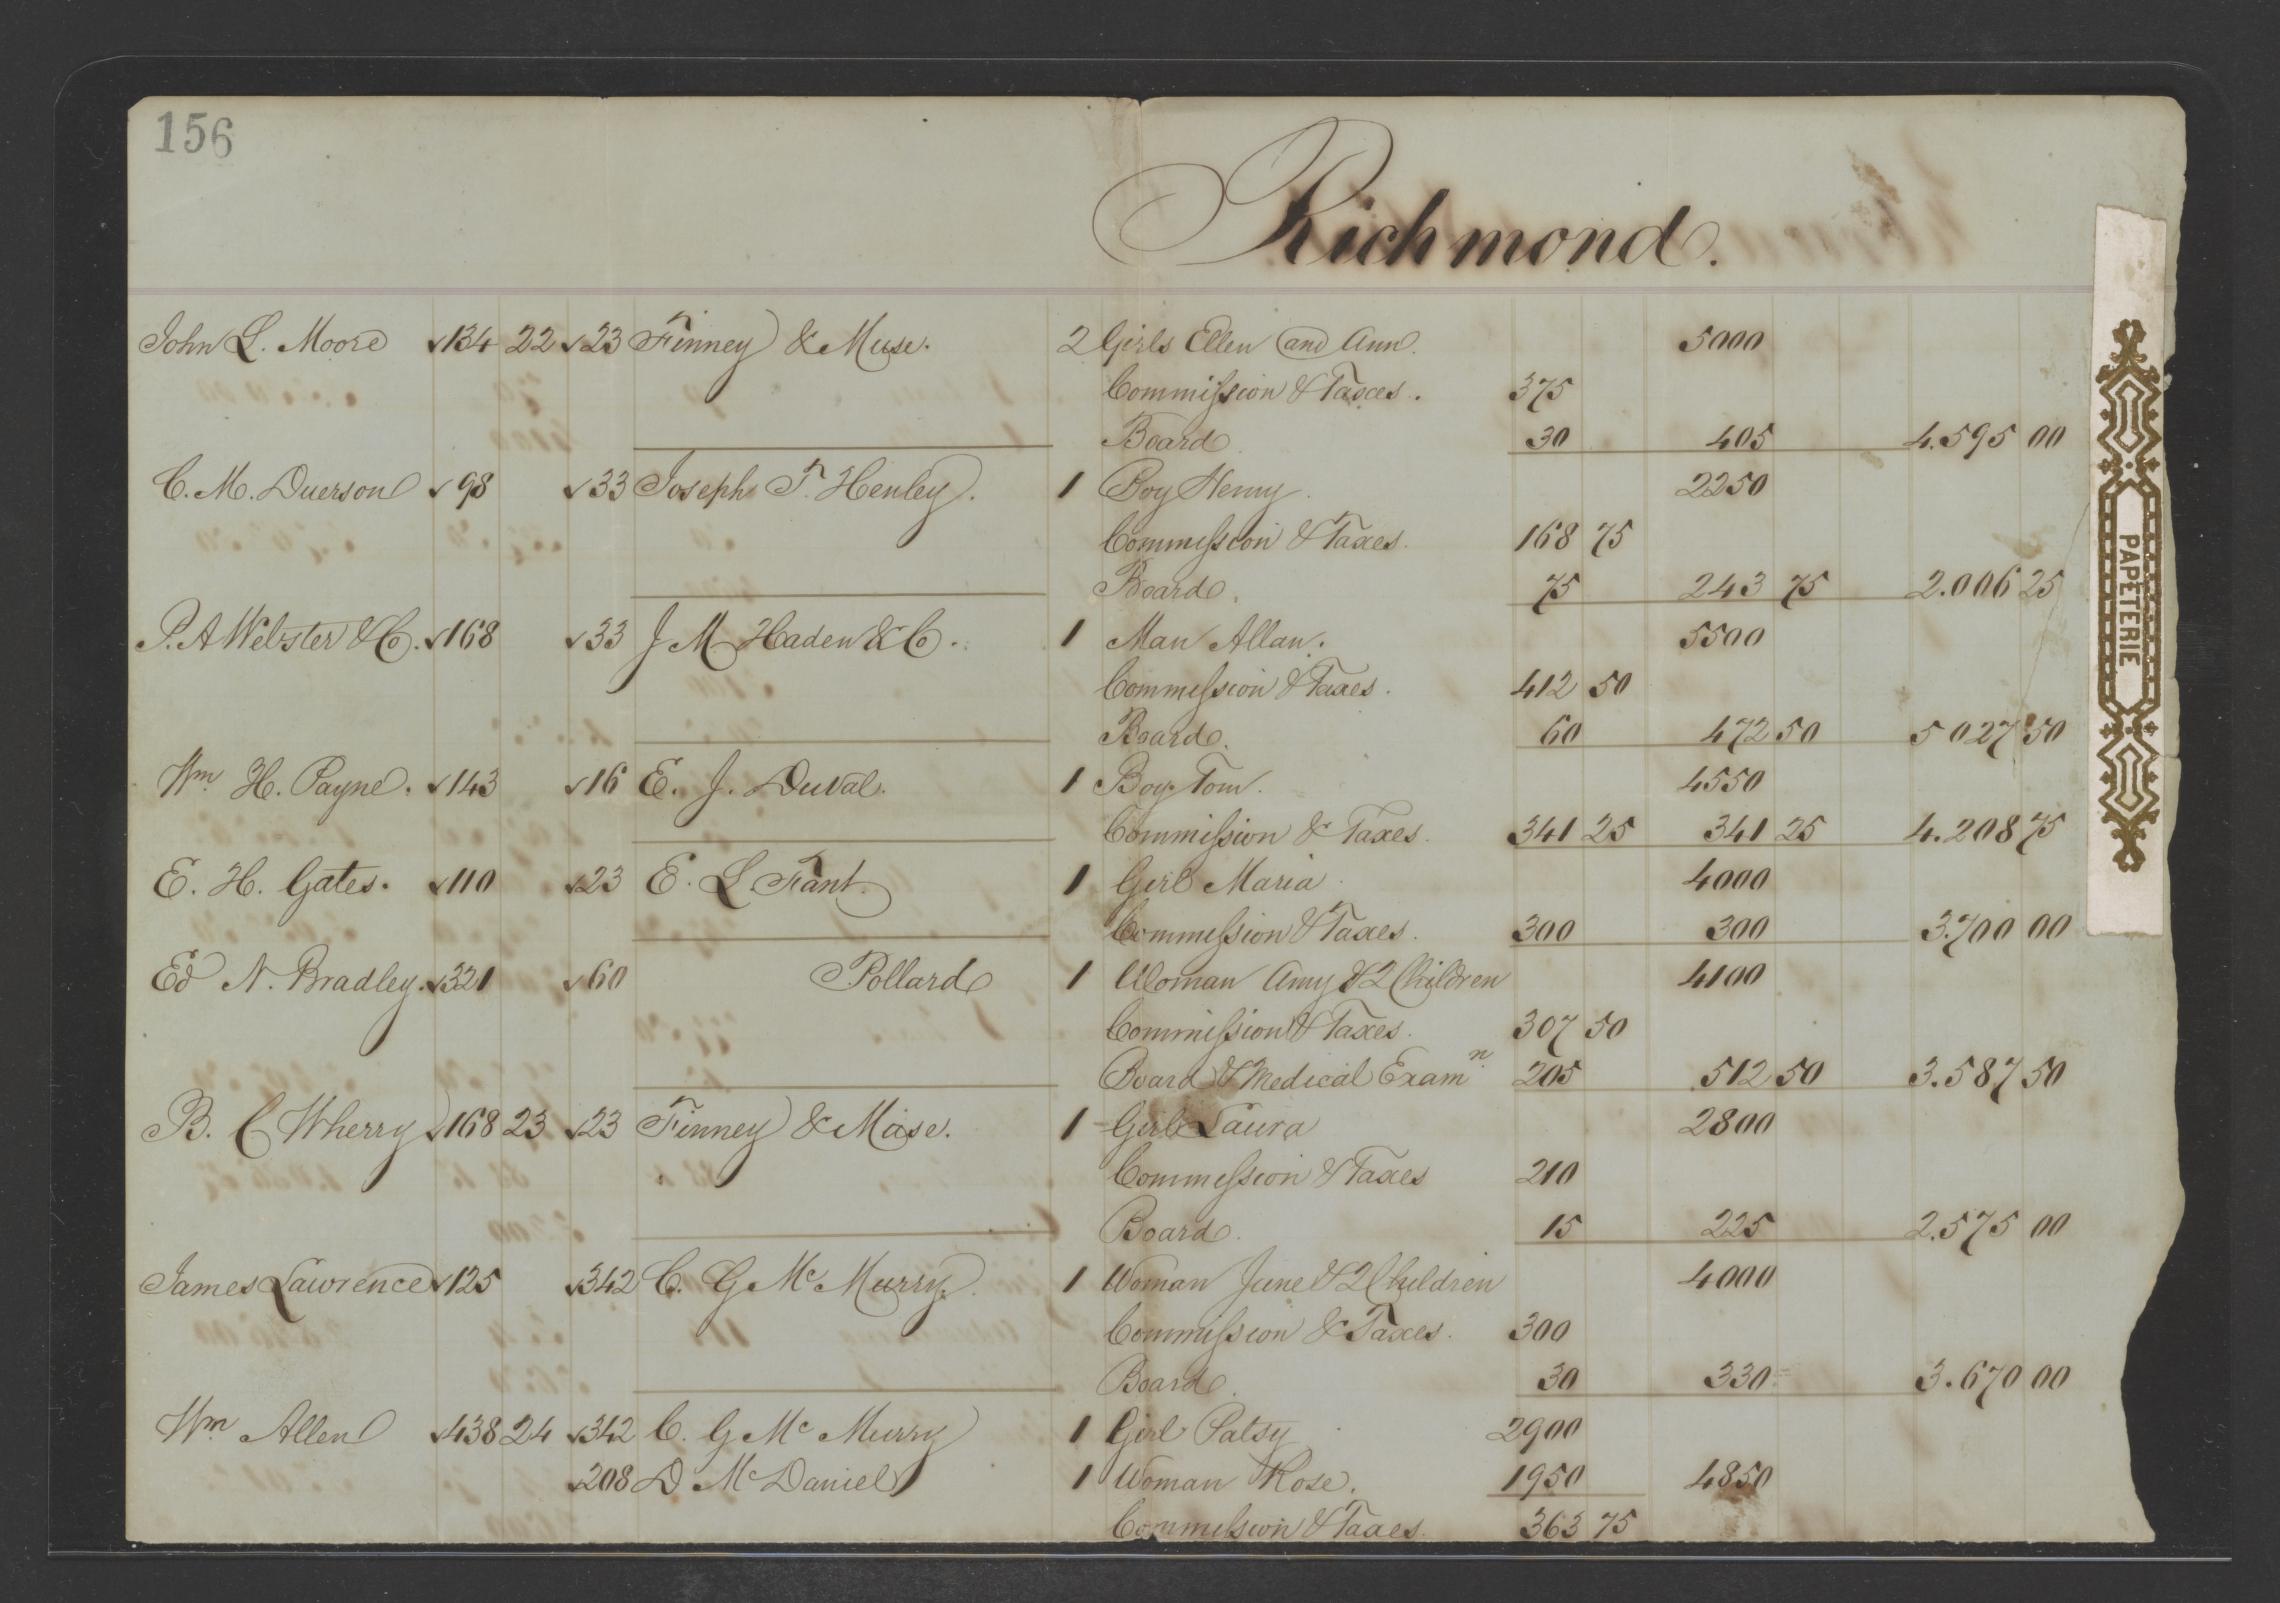 156
Richmond.
John L. Moore √134 22 √23 Finney & Muse. 2 Girls Ellen and Ann. 5000
Commission & Taxes. 375
Board 30 405 4.595 00
C. M. Duerson √98 √33 Joseph T. Henley. 1 Boy Henry. 2250
Commission & Taxes. 168 75
Board. 75 243 75 2.006 25
P. A Webster & C. √168 √33 J M Haden & C. 1 Man Allan. 5500
Commission & Taxes. 412 50
Board. 60 472 50 5027 50
Wm H. Payne. √143 √16 E. J. Duval. 1 Boy Tom. 4550
Commission & Taxes. 341 25 341 25 4.208 75
E. H. Gates. √110 √23 E. L. Fant. 1 Girl Maria 4000
Commission & Taxes. 300 300 3.700 00
Ed N. Bradley. √321 √60 Pollard 1 Woman Amy & 2 Children 4100
Commission & Taxes. 307 50
Board & Medical Examn 205 512 50 3.587 50
B. C Wherry √168 23 √23 Finney & Muse. 1 Girl Laura 2800
Commission & Taxes 210
Board. 15 225 2.575 00
James Lawrence √125 √342 C. G McMurry. 1 Woman June & 2 Children 4000
Commission & Taxes. 300
Board. 30 330 3.670 00
Wm Allen √438 24 √342 C. G McMurry 1 Girl Patsy 2900
√208 D McDaniel 1 Woman Rose. 1950 4850
Commission & Taxes. 363 75
PAPÈTERIE